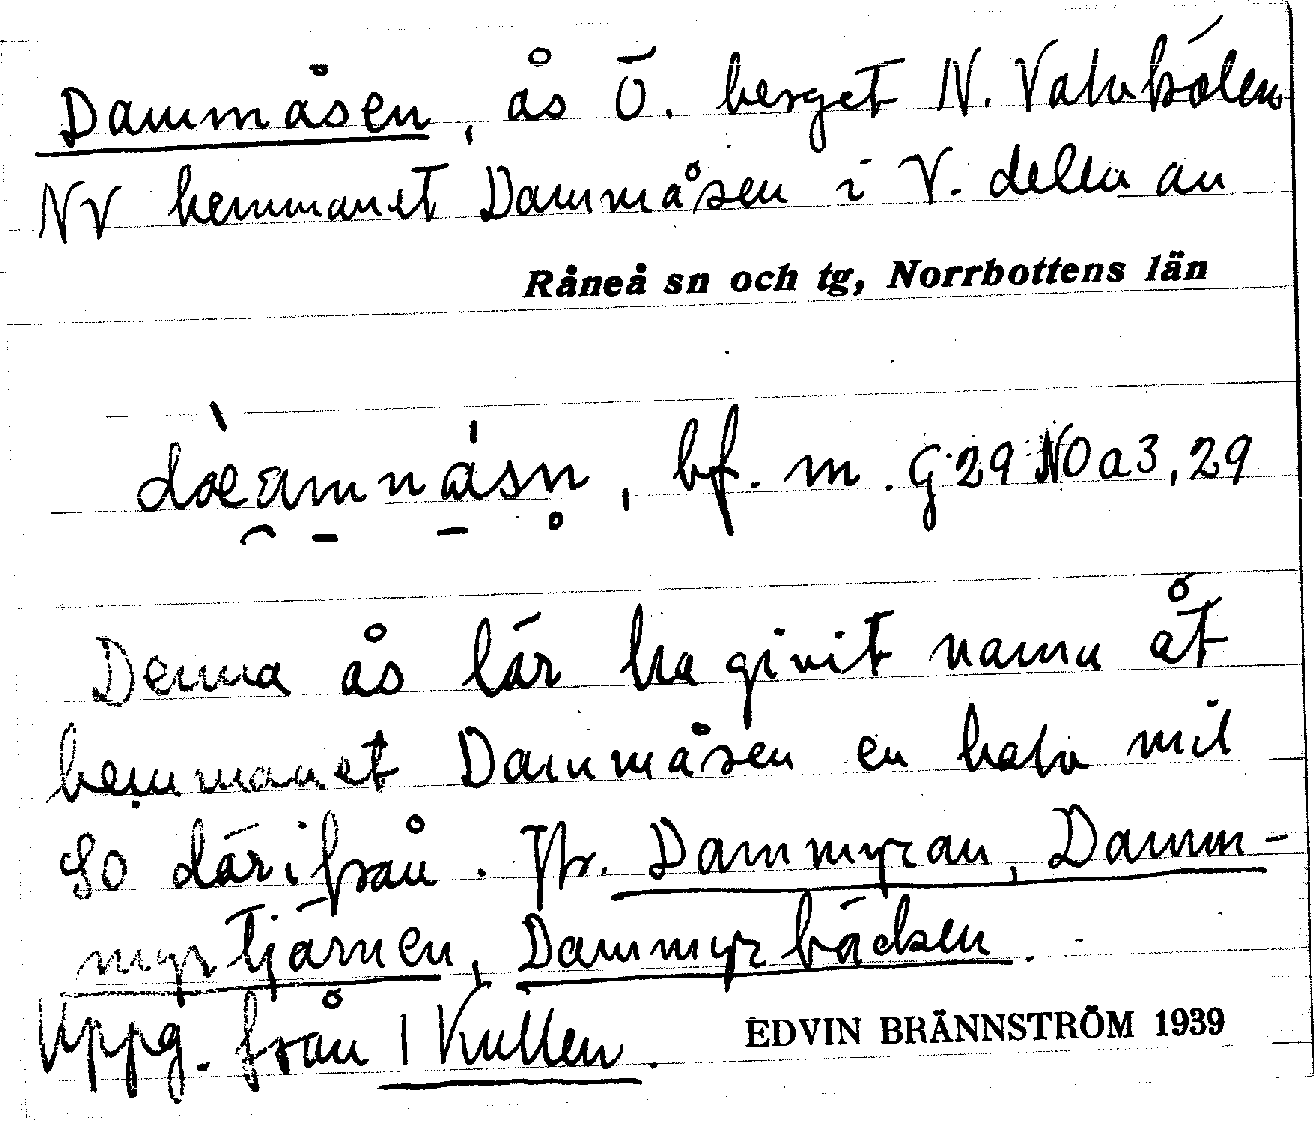 Dammåsen, ås Ö. berget N. Valvkölen
NV hemmanet Dammåsen i V. delen av
Råneå sn och tg, Norrbottens län
bf. m. G 29 NO a 3, 29
Denna ås lär ha givit namn åt
hemmanet Dammåsen en halv mil
SO därifrån. Jfr. Dammyran, Damm-
myrtjärnen, Dammyrbäcken.
Uppg. från 1 Kullen.
EDVIN BRÄNNSTRÖM 1939